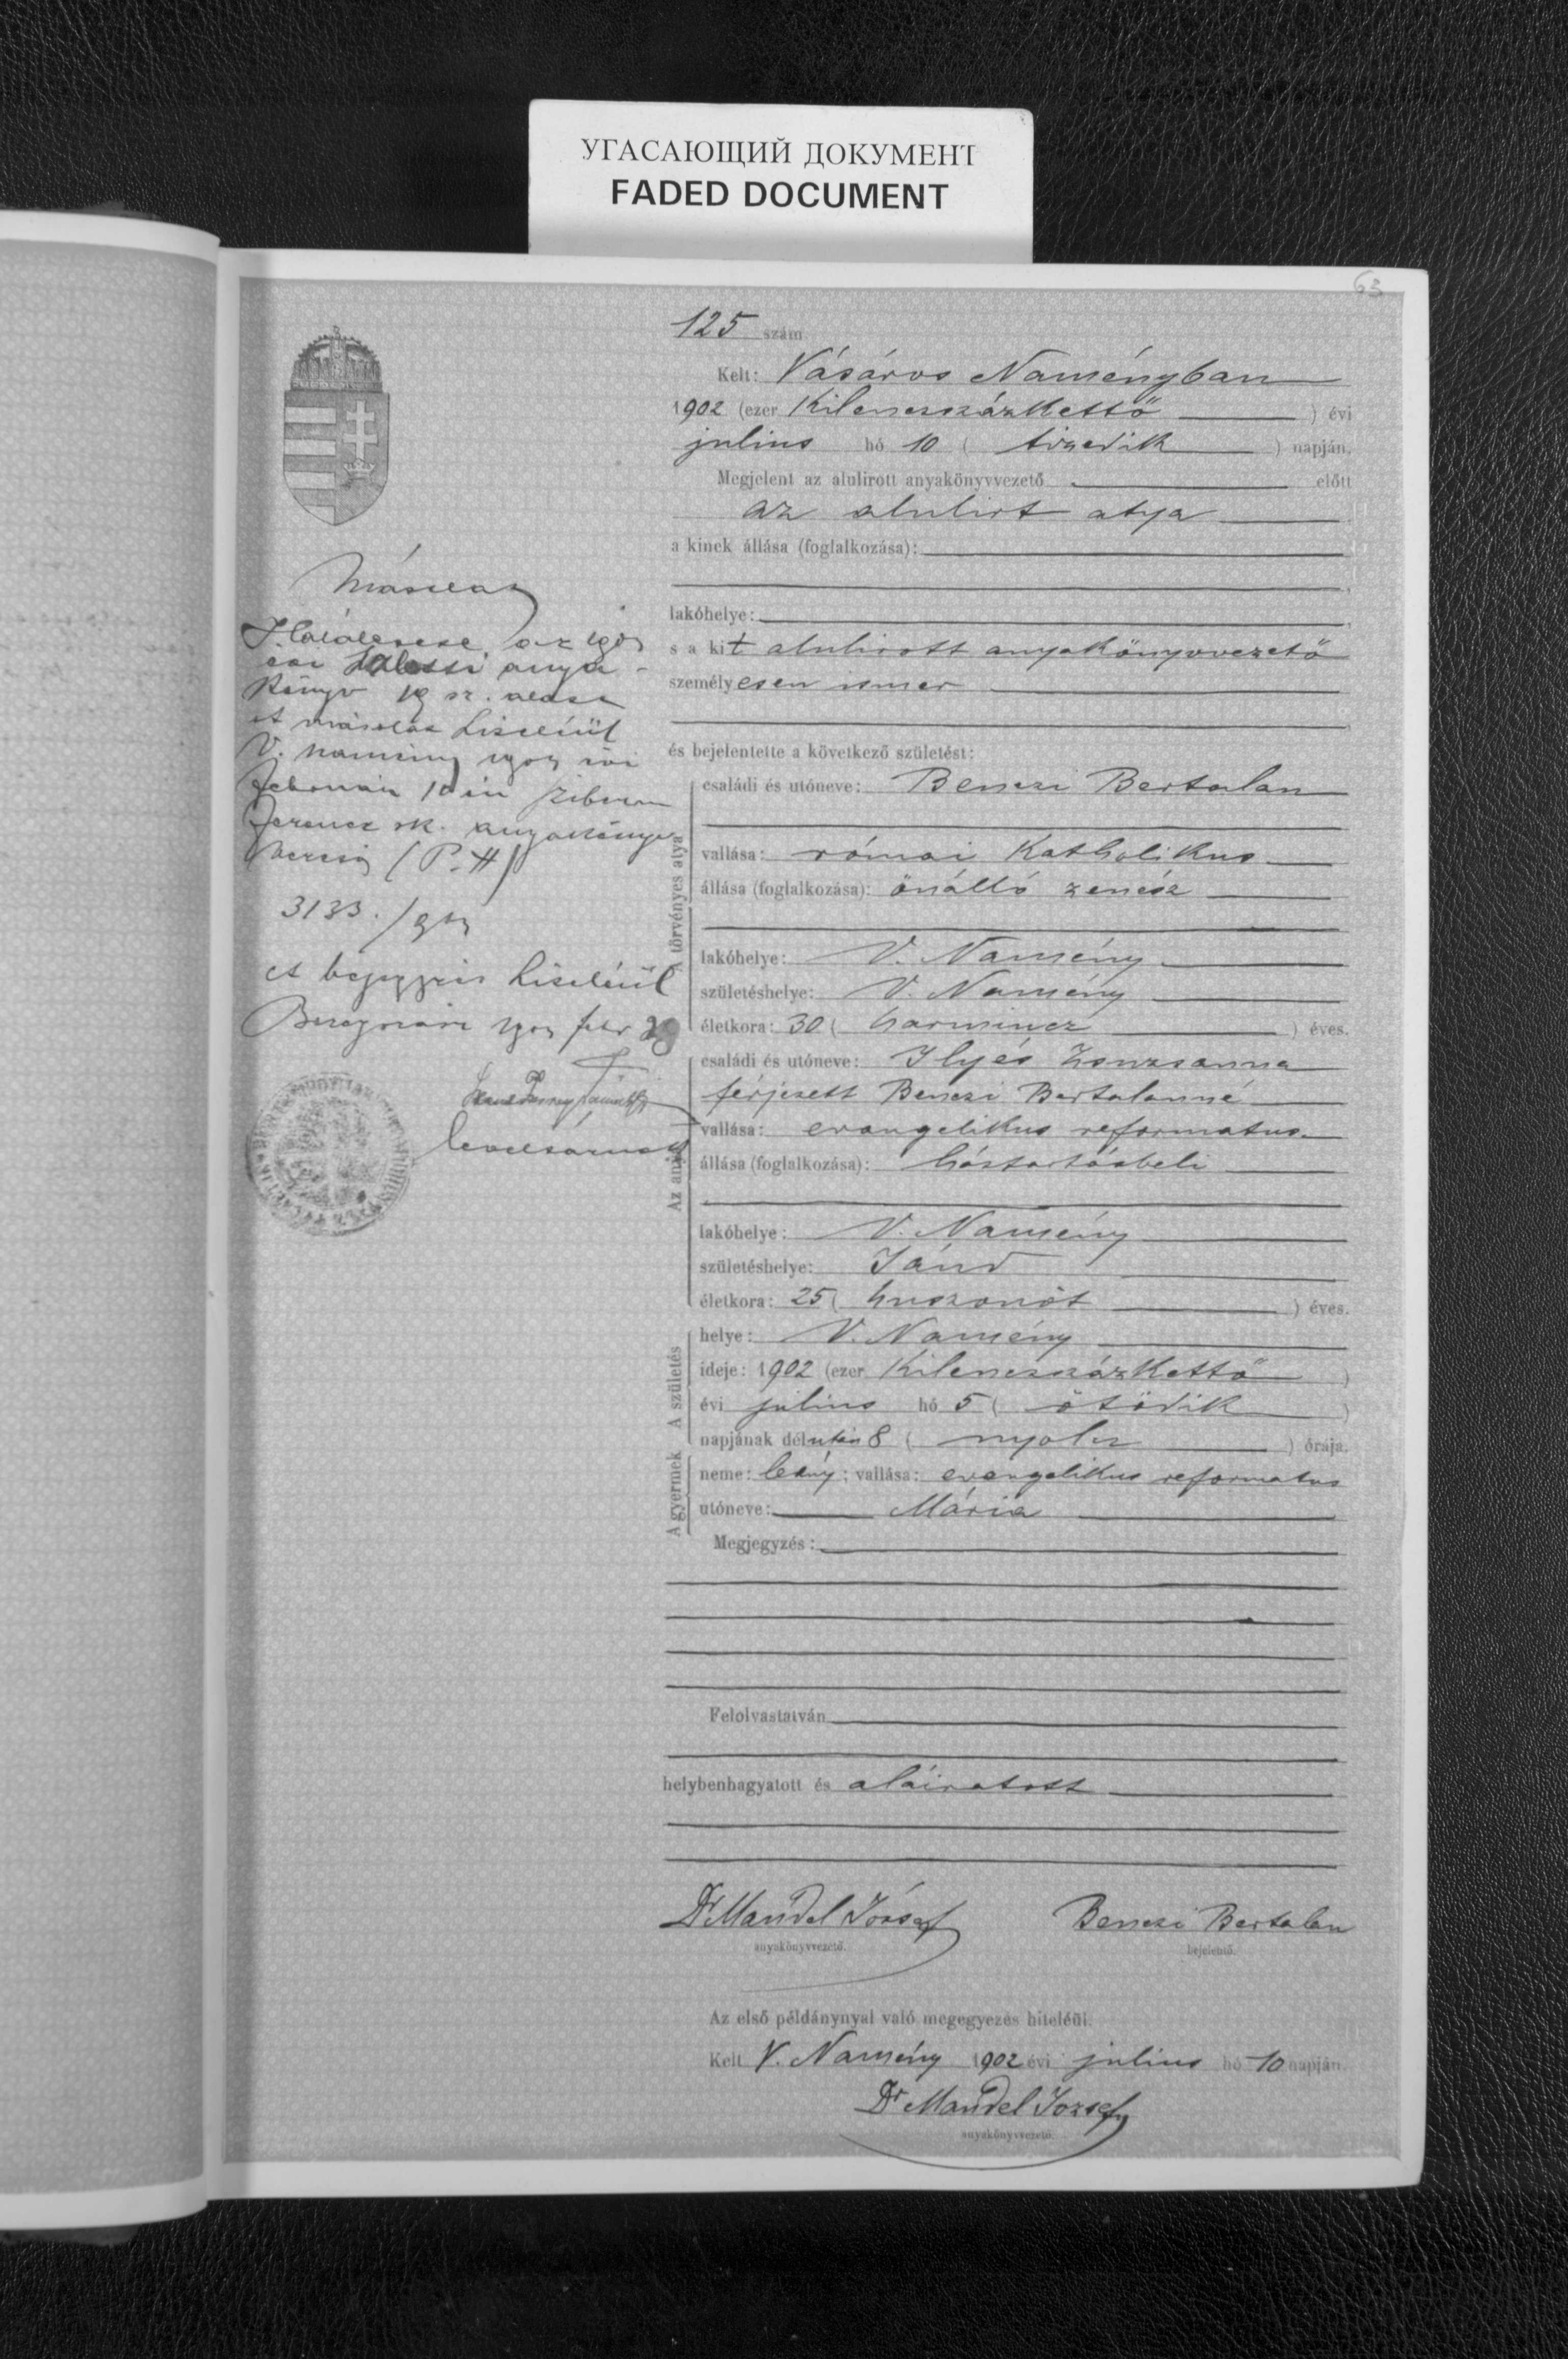 УГАСАЮЩИЙ ДОКУМЕНТ
FADED DOCUMENT
63
125 szám
Kelt: Vásáros Naményban
1902 (ezer kilenczszázkettő) évi
julius hó 10 (tizedik) napján.
Megjelent az alulirott anyakönyvvezető előtt
az alulirt atya
a kinek állása (foglalkozása):
lakóhelye:
s a kit alulirott anyakönyvvezető
személyesen ismer
és bejelentette a következő születést:
A törvényes atya
családi és utóneve: Benczi Bertalan
vallása: római katholikus
állása (foglalkozása): önálló zenész
lakóhelye: V. Namény
születéshelye: V. Namény
életkora: 30 (harmincz) éves.
Az anya
családi és utóneve: Ilyés Zsuzsanna
férjezett Benczi Bertalanné
vallása: evangelikus reformatus
állása (foglalkozása): háztartásbeli
lakóhelye: V. Namény
születéshelye: Jánd
életkora: 25 (huszonöt) éves.
A születés
helye: V. Namény
ideje: 1902 (ezer kilenczszázkettő)
évi julius hó 5 (ötödik)
napjának délután 8 (nyolcz) órája.
A gyermek
neme: leány; vallása: evangelikus reformatus
utóneve: Mária
Megjegyzés:
Felolvastatván
helybenhagyatott és aláiratott
Dr Mandel József
anyakönyvvezető.
Benczi Bertalan
bejelentő.
Az első példánynyal való megegyezés hiteléül.
Kelt V. Namény 1902 évi julius hó 10 napján.
Dr Mandel József
anyakönyvvezető.
Másolat
anya-
könyv 19 sz. alatt
A másolat hiteléül
V. Namény évi
február 10 én
Ferencz sk. anyakönyv
vezető (P. H)
3133./
A bejegyzés hiteléül
febr 29
levéltárnok